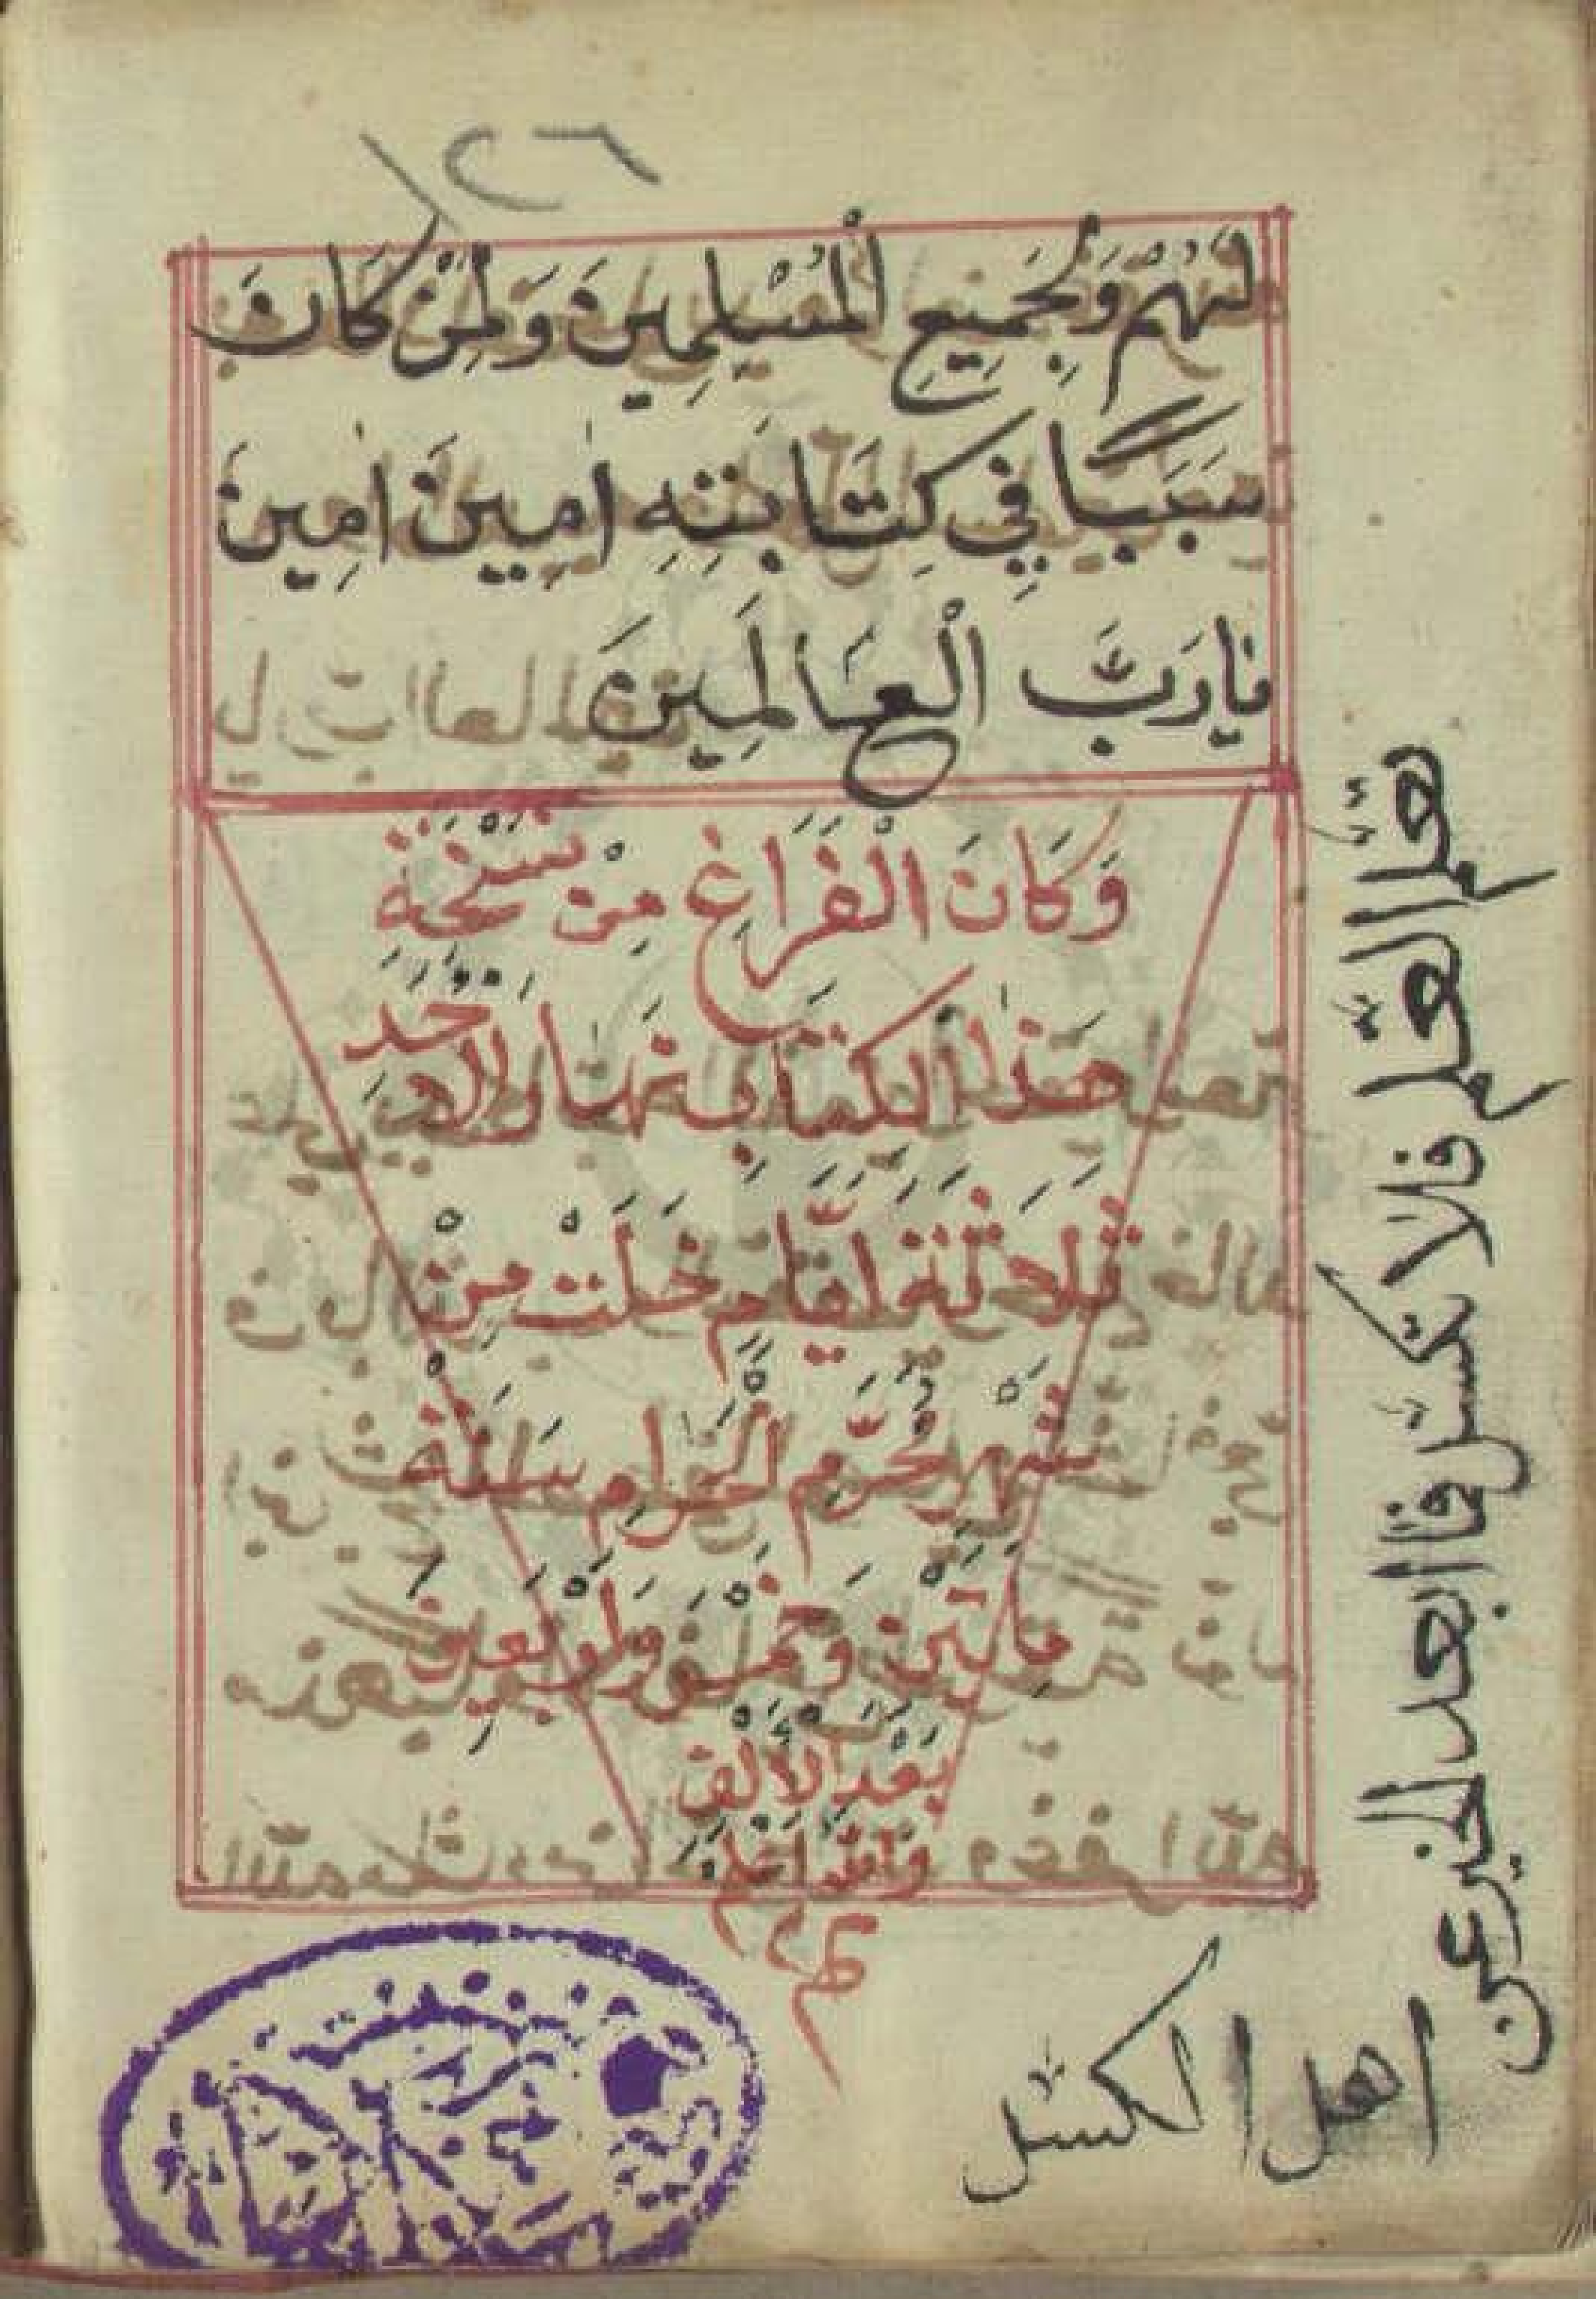 ١٢٦
لَهُمْ وَلِجَمِيعِ الْمُسْلِمِينَ وَلِمَنْ كَانَ
سَبَبًا فِي كِتَابَتِهِ اٰمِينَ اٰمِينَ
يَا رَبَّ الْعَالَمِينَ
وَكَانَ الْفَرَاغِ مِنْ نَسْخَةِ
هَذَا الْكِتَابِ نَهَارَ الْاَحَدِ
ثَلَاثَةِ اَيَّامٍ خَلَتْ مِنْ
شَهْرِ مُحَرَّمِ الْحَرَامِ سَنَةَ
مِائَتَيْنِ وَخَمْسَةٍ وَاَرْبَعِينَ
بَعْدَ الْاَلْف
وَاللهُ اَعْلَم
تم
تعلّم العلم فلا تكسل فما ابعد الخير عن
اهل الكسل